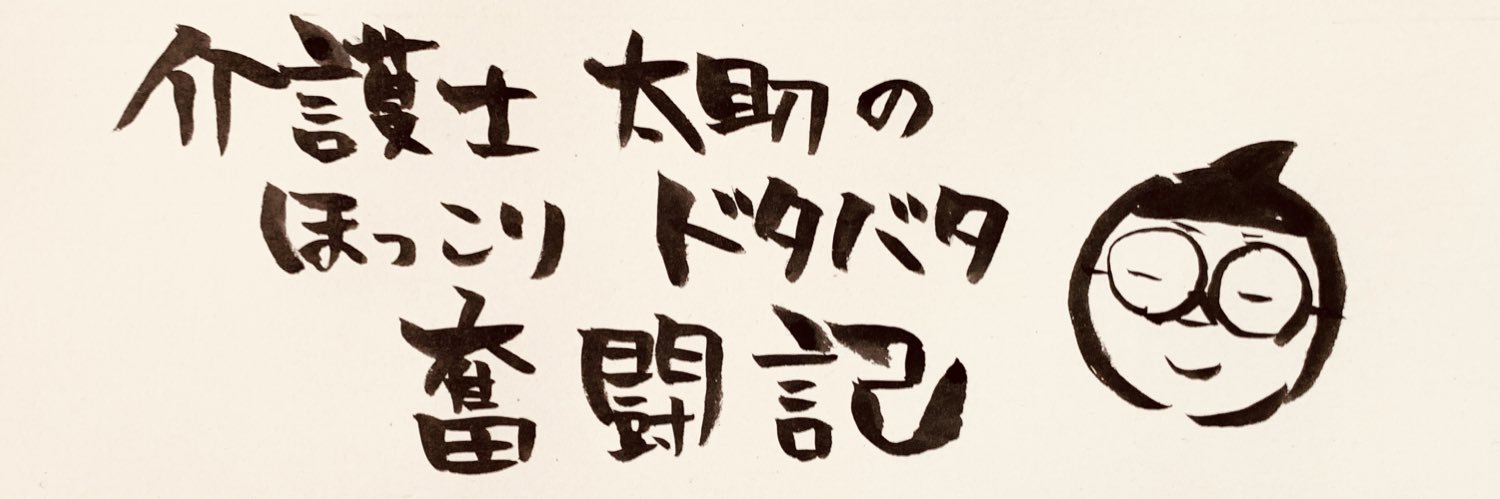 介護士 太助の
ほっこり ドタバタ
奮闘記